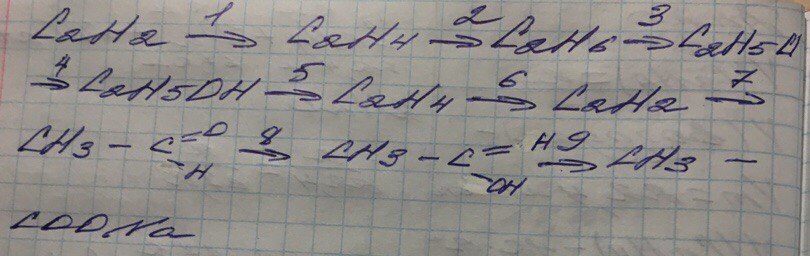 C2H2 1→ C2H4 2→ C2H6 3→ C2H5Cl
4→ C2H5OH 5→ C2H4 6→ C2H2 7→
CH3 - C =O -H 8→ CH3 - C = -OH H 9→ CH3 -
COONa